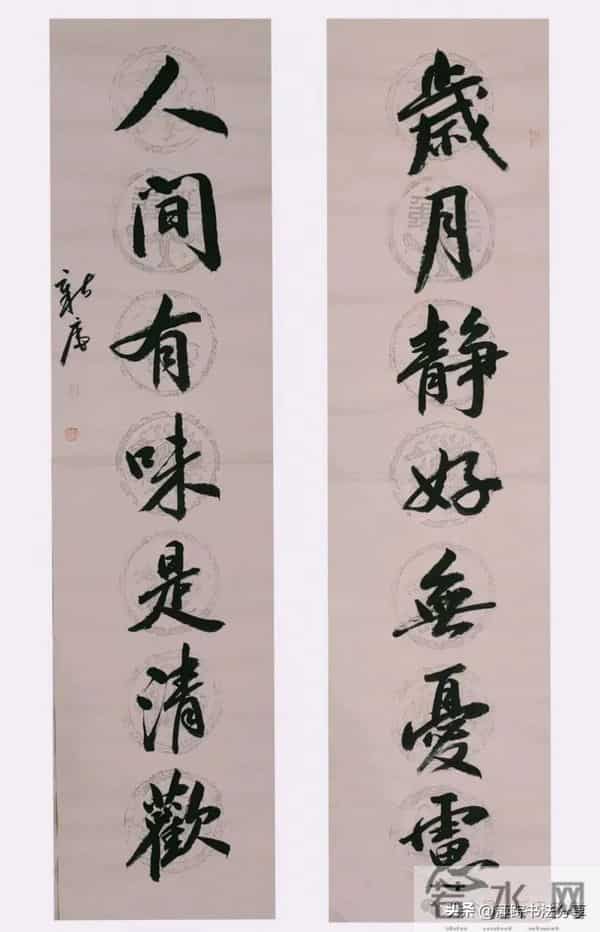 歲月靜好無憂慮
人間有味是清歡
若水网
头条 @ 书法分享